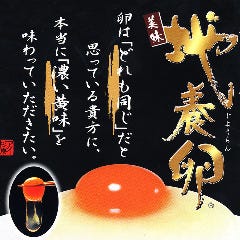 美味
地養卵
じようらん
卵は「どれも同じ」だと
思っている貴方に、
本当に「濃い黄味」を
味わっていただきたい。